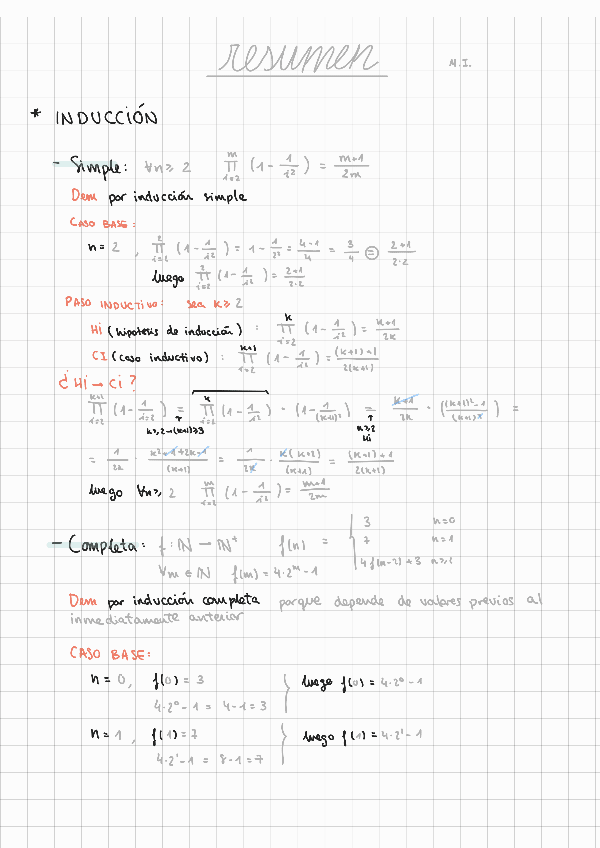 resumen M.I.
* INDUCCIÓN
- Simple: ∀n ≥ 2 ∏_{i=2}^{n} (1 - 1/i²) = (n+1)/2n
Dem por inducción simple
CASO BASE:
n = 2 , ∏_{i=2}^{2} (1 - 1/i²) = 1 - 1/2² = (4-1)/4 = 3/4 = (2+1)/(2·2)
luego ∏_{i=2}^{2} (1 - 1/i²) = (2+1)/(2·2)
PASO INDUCTIVO: sea k ≥ 2
Hi (hipotesis de inducción) : ∏_{i=2}^{k} (1 - 1/i²) = (k+1)/2k
CI (caso inductivo) : ∏_{i=2}^{k+1} (1 - 1/i²) = ((k+1)+1)/(2(k+1))
¿Hi → Ci?
∏_{i=2}^{k+1} (1 - 1/i²) = ∏_{i=2}^{k} (1 - 1/i²) · (1 - 1/(k+1)²) = (k+1)/2k · ((k+1)²-1)/(k+1)² =
k≥2→(k+1)≥3 k≥2
Hi
= 1/2k · (k²+1+2k-1)/(k+1) = 1/2k · k(k+2)/(k+1) = ((k+1)+1)/(2(k+1))
luego ∀n ≥ 2 ∏_{i=2}^{n} (1 - 1/i²) = (n+1)/2n
- Completa: f: ℕ → ℕ⁺ f(n) = { 3 n=0
7 n=1
4f(n-2)+3
∀n ∈ ℕ f(n) = 4·2ⁿ - 1
Dem por inducción completa porque depende de valores previos al
inmediatamente anterior
CASO BASE:
n = 0, f(0) = 3 } luego f(0) = 4·2⁰ - 1
4·2⁰ - 1 = 4-1 = 3
n = 1 , f(1) = 7 } luego f(1) = 4·2¹ - 1
4·2¹ - 1 = 8-1 = 7